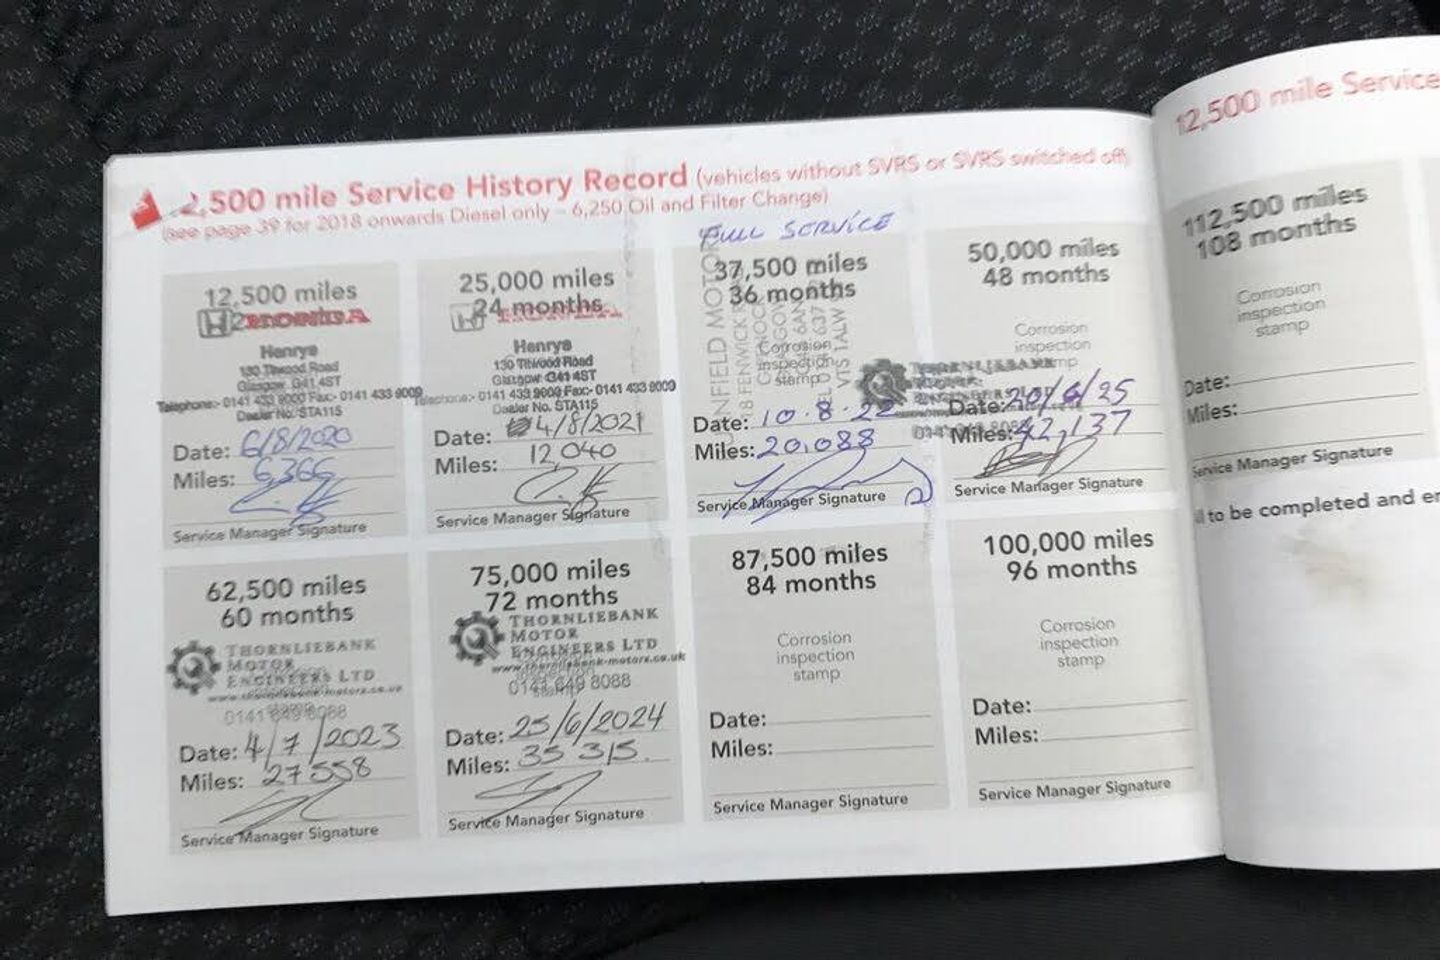 2,500 mile Service History Record (vehicles without SVRS or SVRS switched off)
(see page 39 for 2018 onwards Diesel only - 6,250 Oil and Filter Change)
12,500 miles
HONDA
Henrys
130 Titwood Road
Glasgow G41 4ST
Telephone:- 0141 433 9000 Fax:- 0141 433 9009
Dealer No. STA115
Date: 6/8/2020
Miles: 6,366
Service Manager Signature
25,000 miles
24 months
HONDA
Henrys
130 Titwood Road
Glasgow G41 4ST
Telephone:- 0141 433 9000 Fax:- 0141 433 9009
Dealer No. STA115
Date: 4/8/2021
Miles: 12,040
Service Manager Signature
FULL SERVICE
37,500 miles
36 months
Corrosion
inspection
stamp
Date: 10.8.22
Miles: 20,088
Service Manager Signature
50,000 miles
48 months
Corrosion
inspection
stamp
THORNLIEBANK
Date: 20/6/25
Miles: 42,137
Service Manager Signature
62,500 miles
60 months
THORNLIEBANK
MOTOR
ENGINEERS LTD
www.thornliebank-motors.co.uk
0141 649 8088
Date: 4/7/2023
Miles: 27558
Service Manager Signature
75,000 miles
72 months
THORNLIEBANK
MOTOR
ENGINEERS LTD
www.thornliebank-motors.co.uk
0141 649 8088
Date: 25/6/2024
Miles: 35 315.
Service Manager Signature
87,500 miles
84 months
Corrosion
inspection
stamp
Date:
Miles:
Service Manager Signature
100,000 miles
96 months
Corrosion
inspection
stamp
Date:
Miles:
Service Manager Signature
12,500 mile Service
112,500 miles
108 months
Corrosion
inspection
stamp
Date:
Miles:
Service Manager Signature
to be completed and